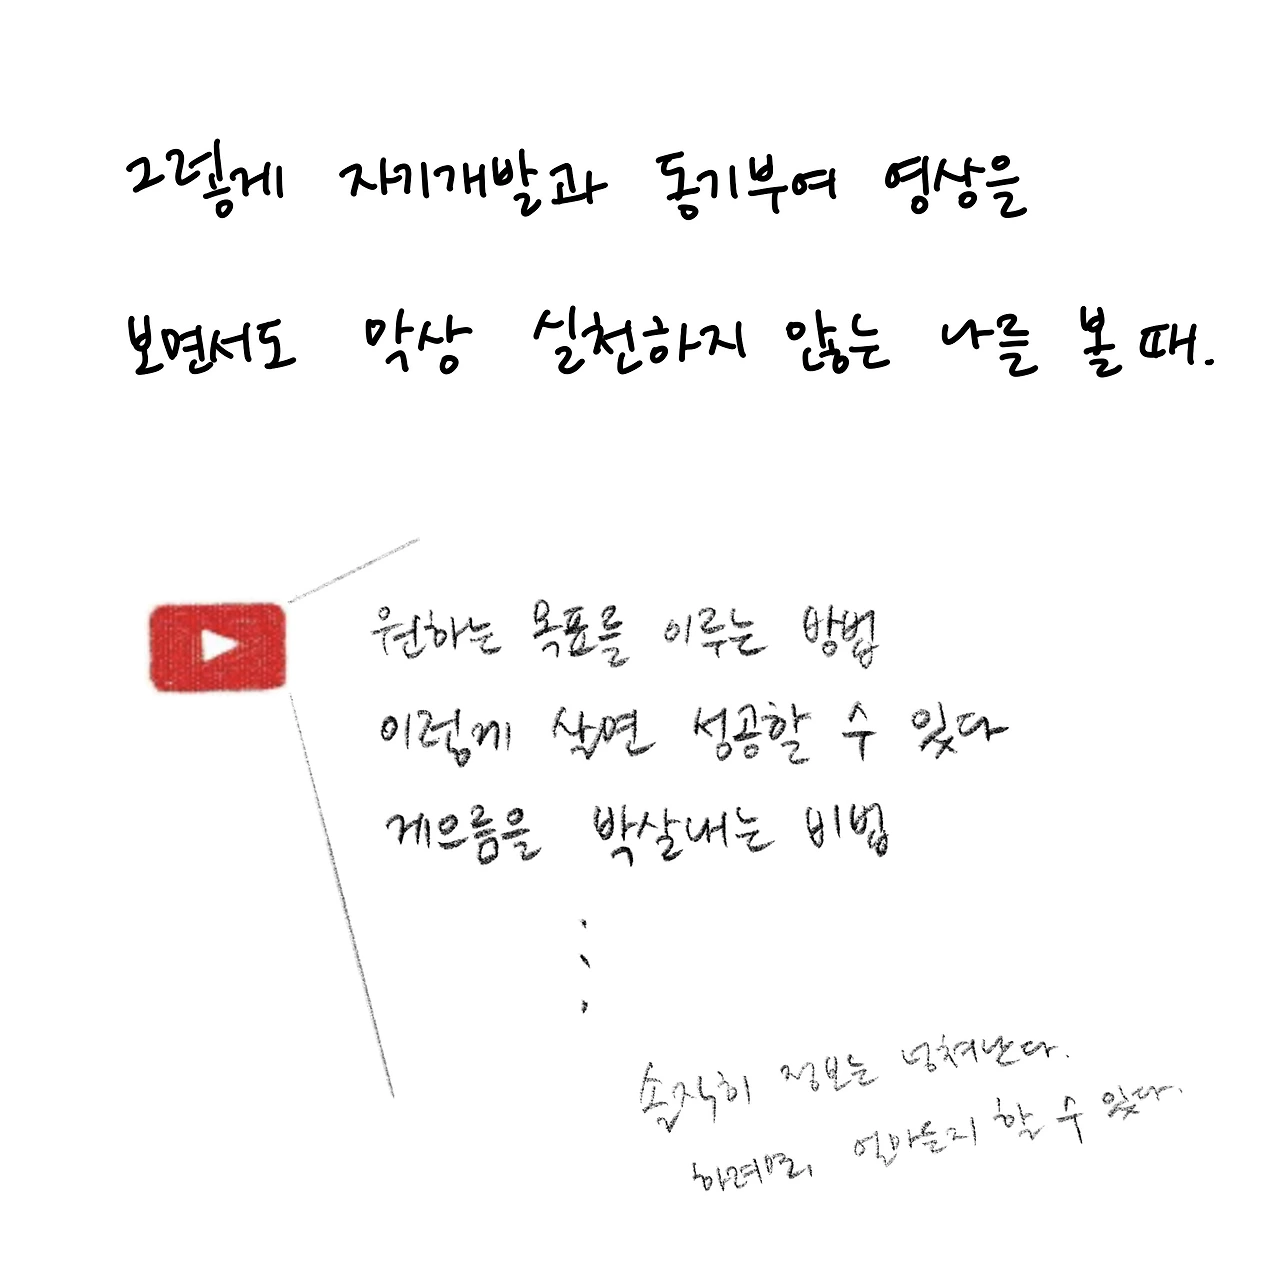 그렇게 자기개발과 동기부여 영상을
보면서도 막상 실천하지 않는 나를 볼 때.
원하는 목표를 이루는 방법
이렇게 살면 성공할 수 있다
게으름을 박살내는 비법
솔직히 정보는 넘쳐난다.
하려면, 얼마든지 할 수 있다.